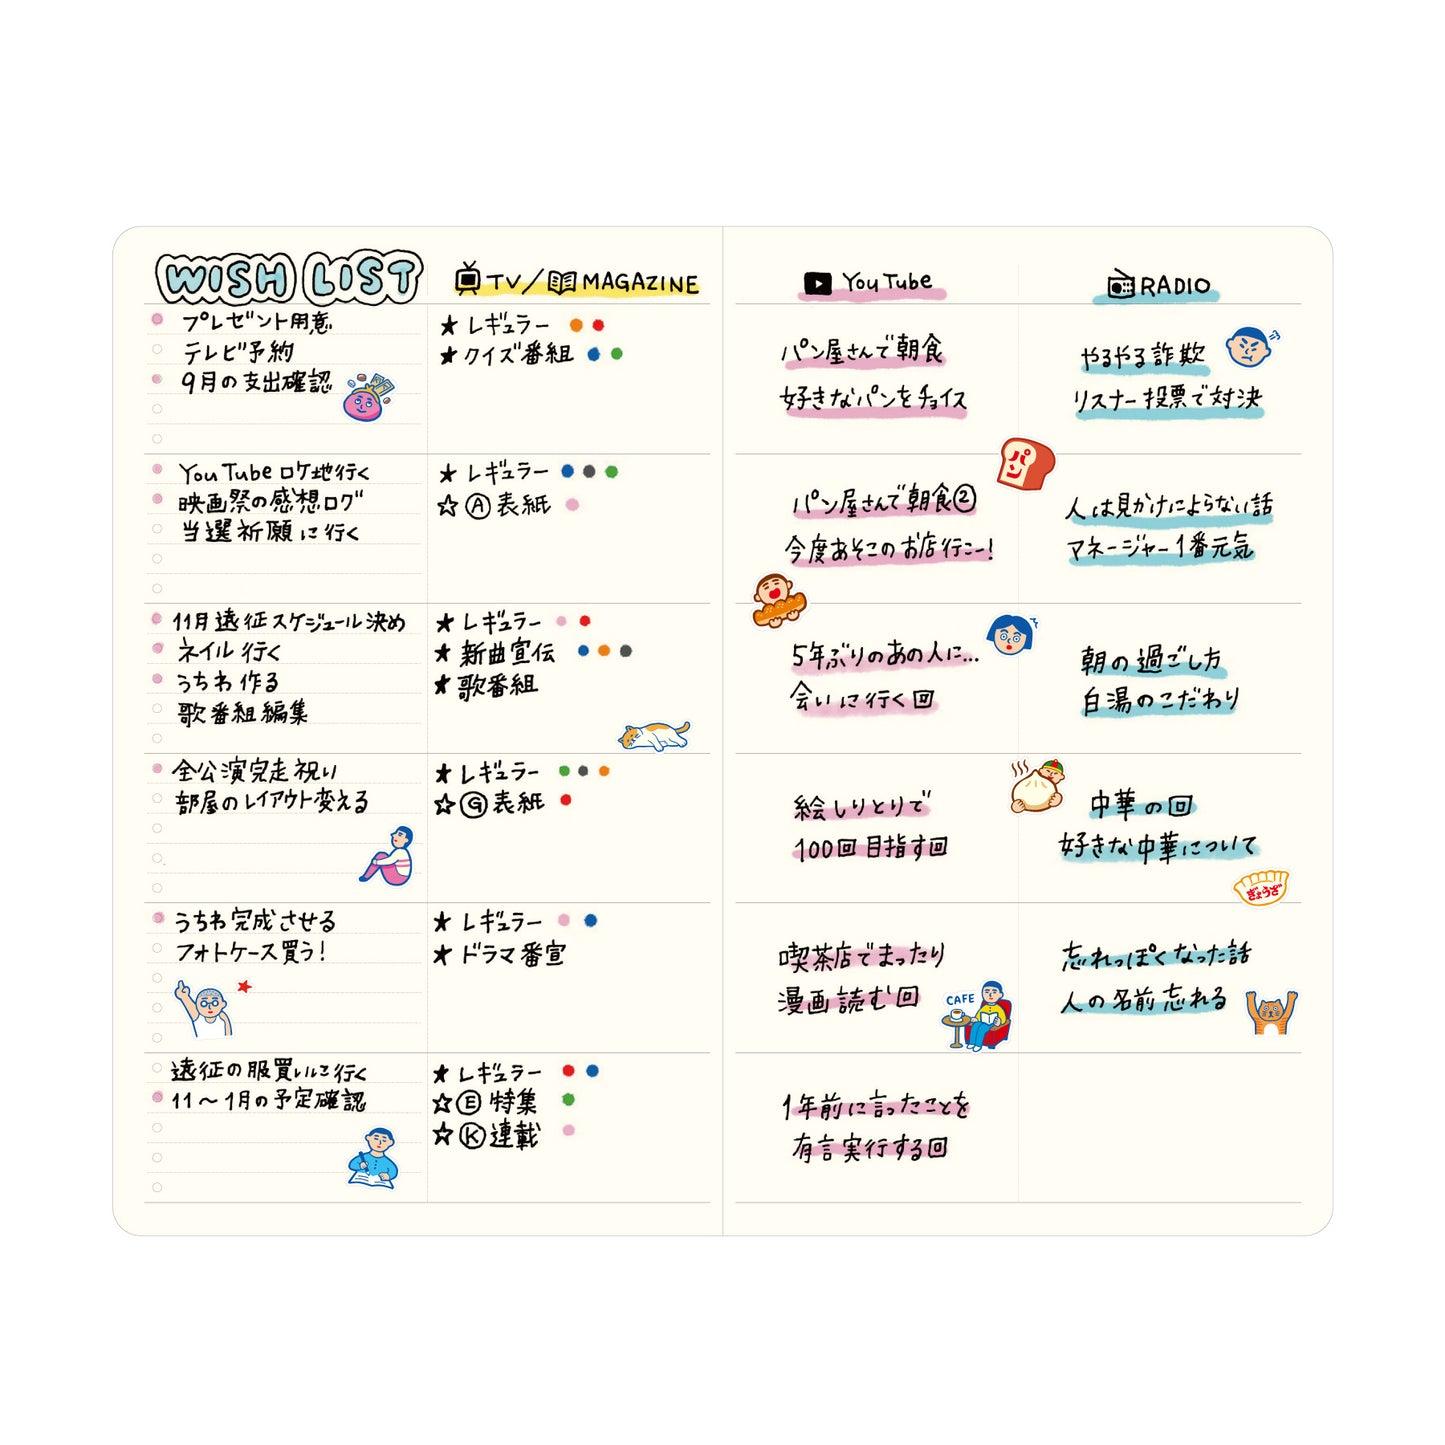 WISH LIST
プレゼント用意
テレビ予約
9月の支出確認
YouTubeロケ地行く
映画祭の感想ログ
当選祈願に行く
11月遠征スケジュール決め
ネイル行く
うちわ作る
歌番組編集
全公演完走祝い
部屋のレイアウト変える
うちわ完成させる
フォトケース買う!
遠征の服買いに行く
11〜1月の予定確認
TV/MAGAZINE
★レギュラー
★クイズ番組
★レギュラー
☆Ⓐ表紙
★レギュラー
★新曲宣伝
★歌番組
★レギュラー
☆Ⓖ表紙
★レギュラー
★ドラマ番宣
★レギュラー
☆Ⓔ特集
☆Ⓚ連載
YouTube
パン屋さんで朝食
好きなパンをチョイス
パン屋さんで朝食②
今度あそこのお店行こー!
5年ぶりのあの人に…
会いに行く回
絵しりとりで
100回目指す回
喫茶店でまったり
漫画読む回
CAFE
1年前に言ったことを
有言実行する回
RADIO
やるやる詐欺
リスナー投票で対決
パン
人は見かけによらない話
マネージャー1番元気
朝の過ごし方
白湯のこだわり
中華の回
好きな中華について
ぎょうざ
忘れっぽくなった話
人の名前忘れる